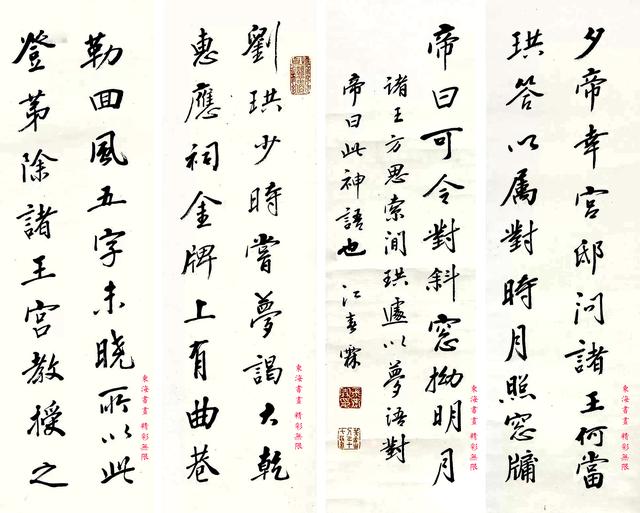 劉珙少時嘗夢謁大乾
惠應祠金牌上有曲巷
勒回風五字未曉所以此
登第除諸王宮教授之
夕帝幸宮邸問諸王何當
珙答以属對時月照窗牖
帝曰可令對斜窗拗明月
諸王方思索間珙遽以夢語對
帝曰此神語也 江春霖
東海書畫 精彩無限
東海書畫 精彩無限
東海書畫 精彩無限
東海書畫 精彩無限